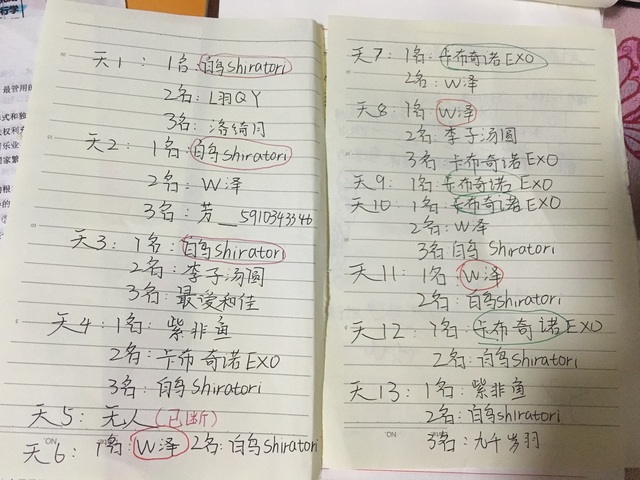 天1：1名：白鸟shiratori
2名：L羽QY
3名：洛绮月
天2：1名：白鸟shiratori
2名：W泽
3名：芳__5910343346
天3：1名：白鸟shiratori
2名：李子汤圆
3名：最爱和佳
天4：1名：紫非鱼
2名：卡布奇诺EXO
3名：白鸟shiratori
天5：无人(已断)
天6：1名：W泽 2名：白鸟shiratori
天7：1名：卡布奇诺EXO
2名：W泽
天8：1名：W泽
2名：李子汤圆
3名：卡布奇诺EXO
天9：1名：卡布奇诺EXO
天10：1名：卡布奇诺EXO
2名：W泽
3名白鸟 Shiratori
天11：1名：W泽
2名：白鸟shiratori
天12：1名：卡布奇诺EXO
2名：白鸟shiratori
天13：1名：紫非鱼
2名：白鸟shiratori
3名：九千岁羽